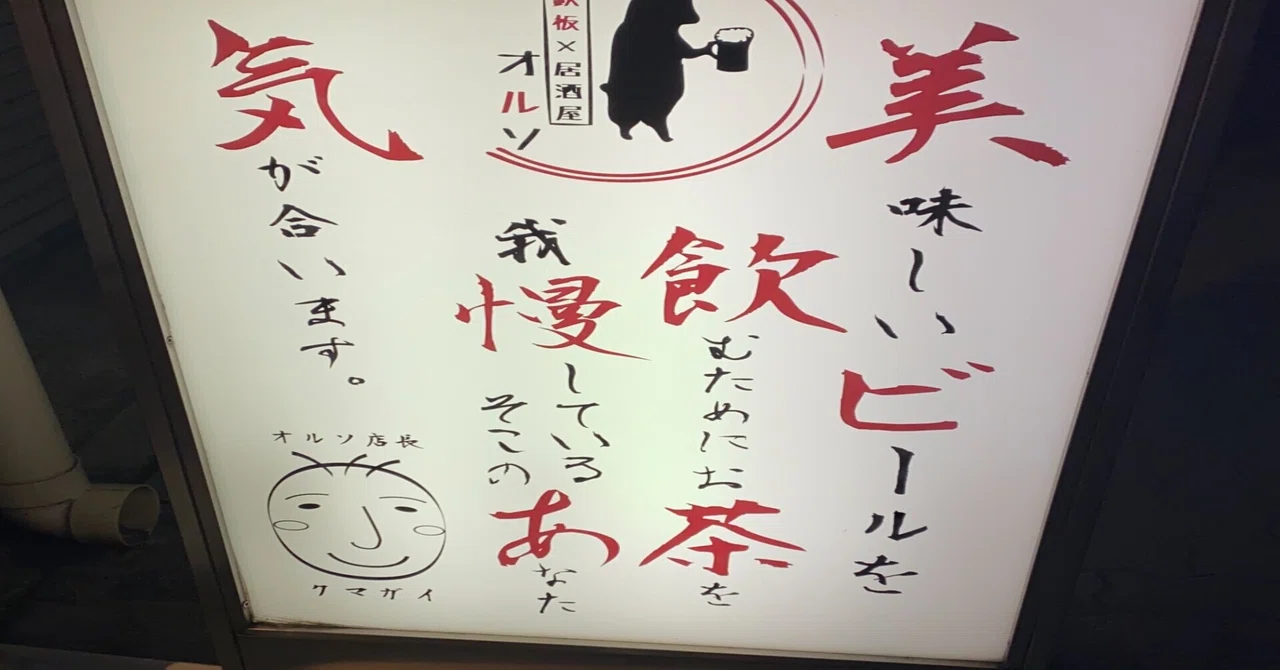 美味しいビールを
飲むためにお茶を
我慢している
そこのあなた
気が合います。
鉄板×居酒屋
オルソ
オルソ店長
クマガイ